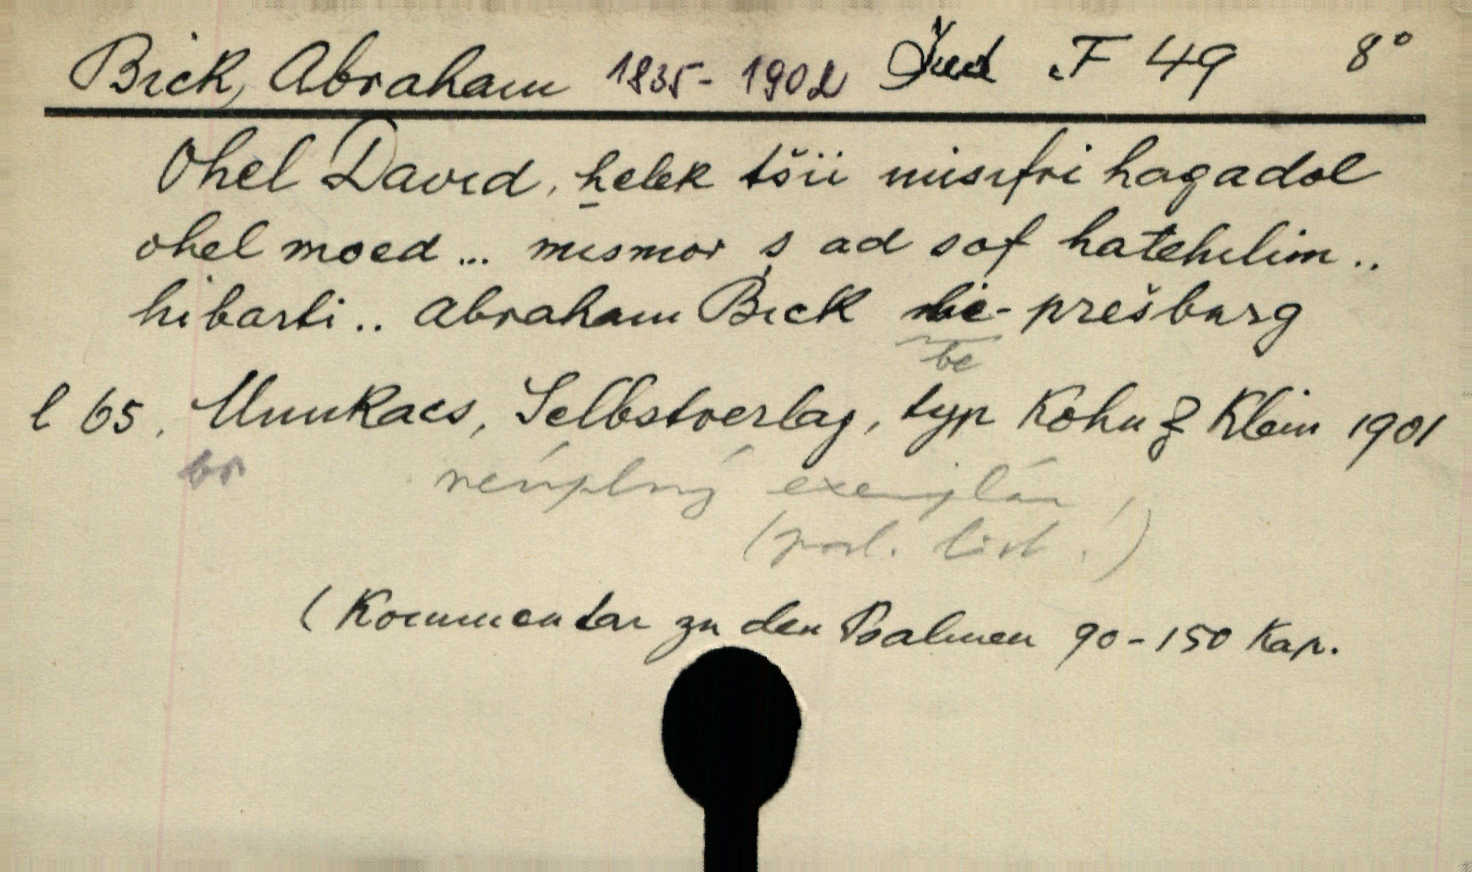 Bick, Abraham 1835-1902 Jud F 49 8°
Ohel David, ḥelek tšii misifri hagadol
ohel moed ... mismor ș ad sof hatehilim ..
hibarti .. Abraham Bick be-prešburg
be
l 65. Munkacs, Selbstverlag, typ Kohn & Klein 1901
br neúplný exemplár,
(posl. list.)
(Kommentar zu den Psalmen 90-150 Kap.